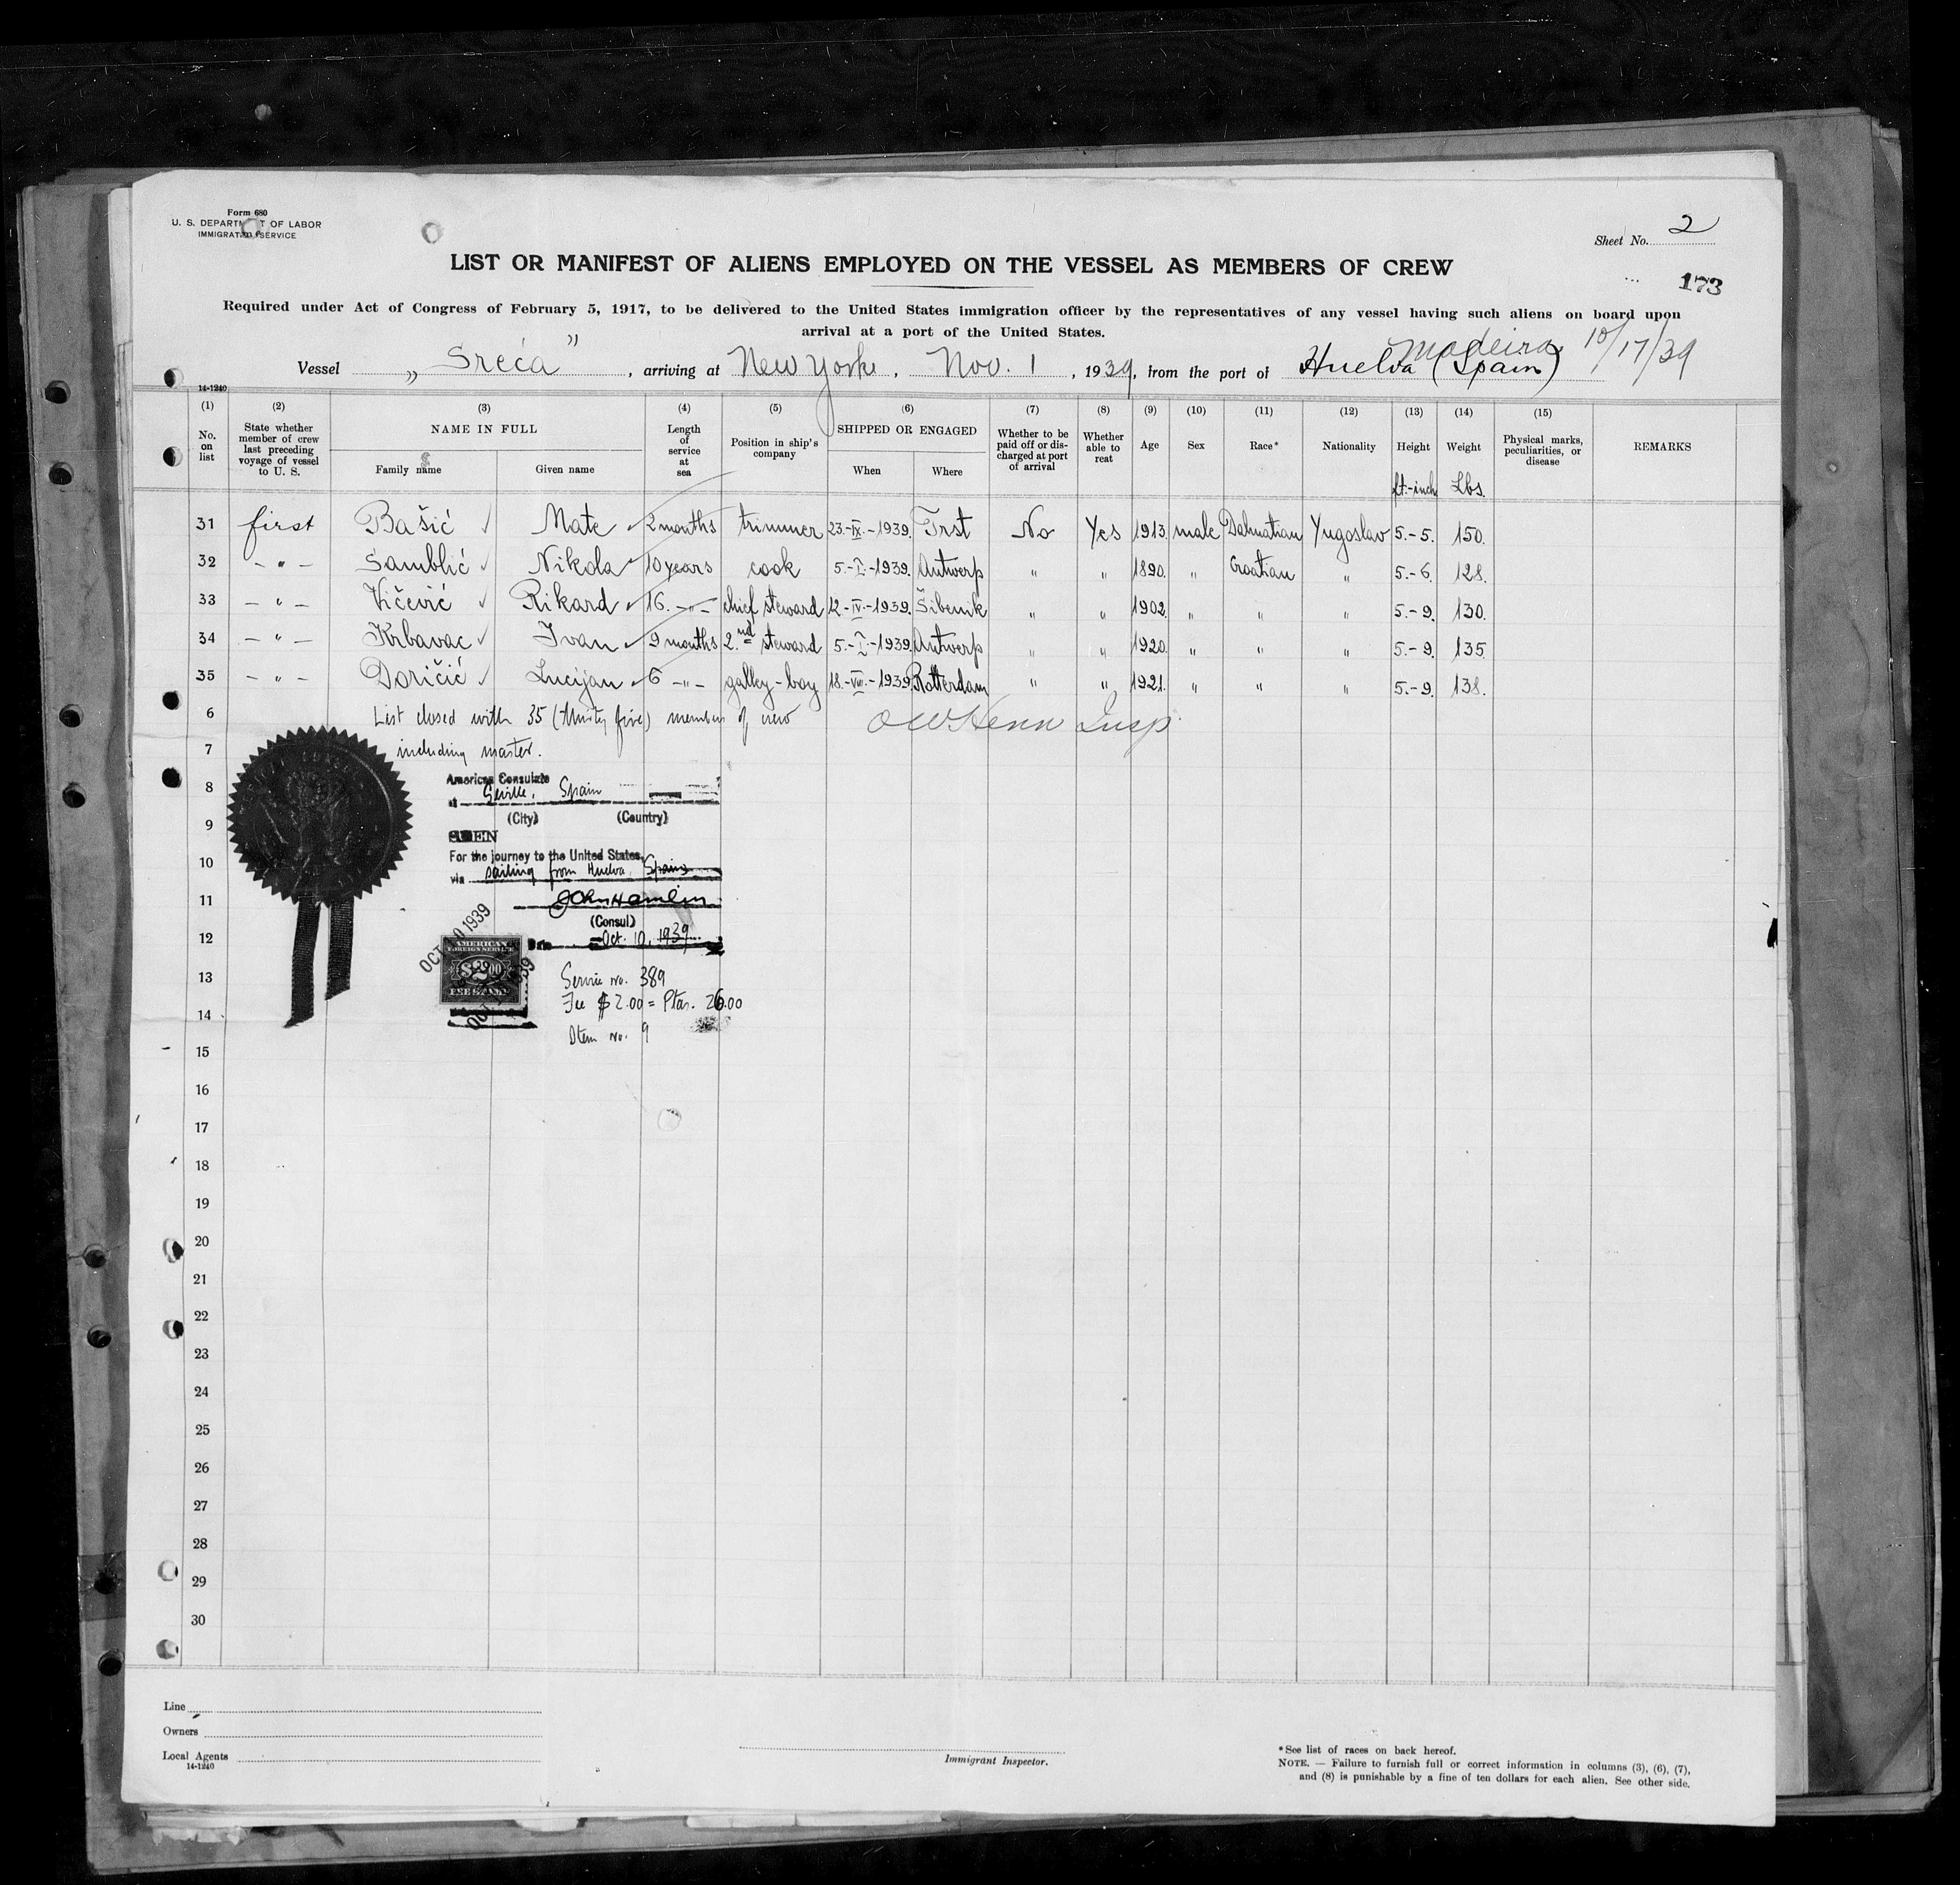 Form 680
U. S. DEPARTMENT OF LABOR
IMMIGRATION SERVICE
Sheet No. 2
LIST OR MANIFEST OF ALIENS EMPLOYED ON THE VESSEL AS MEMBERS OF CREW
173
Required under Act of Congress of February 5, 1917, to be delivered to the United States immigration officer by the representatives of any vessel having such aliens on board upon
arrival at a port of the United States.
Madeira 10/17/39
Vessel „Sreća”, arriving at New York, Nov. 1, 1939, from the port of Huelva (Spain)
14-1240
(1) (2) (3) (4) (5) (6) (7) (8) (9) (10) (11) (12) (13) (14) (15)
No. on list
State whether member of crew last preceding voyage of vessel to U. S.
NAME IN FULL
Family name
Given name
Length of service at sea
Position in ship's company
SHIPPED OR ENGAGED
When
Where
Whether to be paid off or discharged at port of arrival
Whether able to reat
Age
Sex
Race*
Nationality
Height
Weight
Physical marks, peculiarities, or disease
REMARKS
ft.-inch Lbs.
31 first Bašić Mate 2 months trimmer 23.-IX.-1939. Trst No Yes 1913. male Dalmatian Yugoslav 5.-5. 150.
32 – " – Samblić Nikola 10 years cook 5.-I.-1939. Antwerp " " 1890. " Croatian " 5.-6. 128.
33 – " – Vičević Rikard 16. – " – chief steward 12.-IV.-1939. Šibenik " " 1902. " " " 5.-9. 130.
34 – " – Krbavac Ivan 9 months 2.nd steward 5.-I.-1939. Antwerp " " 1920. " " " 5.-9. 135.
35 – " – Doričić Lucijan 6 – " – galley-boy 18.-VIII.-1939. Rotterdam " " 1921. " " " 5.-9. 138.
6 List closed with 35 (thirty five) members of crew OW Henn Insp.
7 including master.
8 American Consulate
at Seville, Spain
9 (City) (Country)
SEEN
10 For the journey to the United States,
via sailing from Huelva, Spain
11 John Hamlin
(Consul)
12 Date Oct. 10, 1939
OCT 10 1939
AMERICAN
FOREIGN SERVICE
$2.00
FEE STAMP
13 Service no. 389
14 Fee $2.00 = Ptas. 26.00
Item no. 9
15
16
17
18
19
20
21
22
23
24
25
26
27
28
29
30
Line
Owners
Local Agents
14-1240
Immigrant Inspector.
*See list of races on back hereof.
NOTE. — Failure to furnish full or correct information in columns (3), (6), (7),
and (8) is punishable by a fine of ten dollars for each alien. See other side.